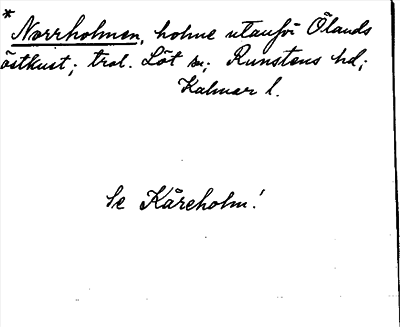 * Norrholmen, holme utanför Ölands
östkust; trol. Löt sn; Runstens hd;
Kalmar l.
Se Kåreholm!